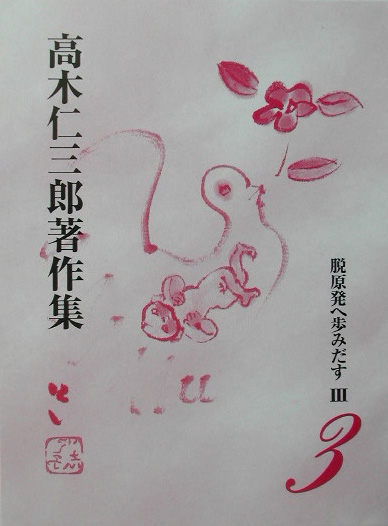 高木仁三郎著作集
脱原発へ歩みだす III
3